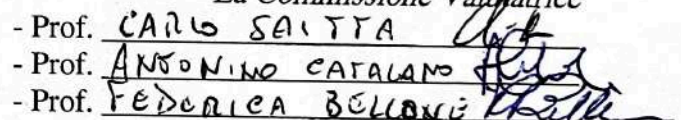 La Commissione Valutatrice
- Prof. CARLO SAITTA
- Prof. ANTONINO CATALANO
- Prof. FEDERICA BELLONE